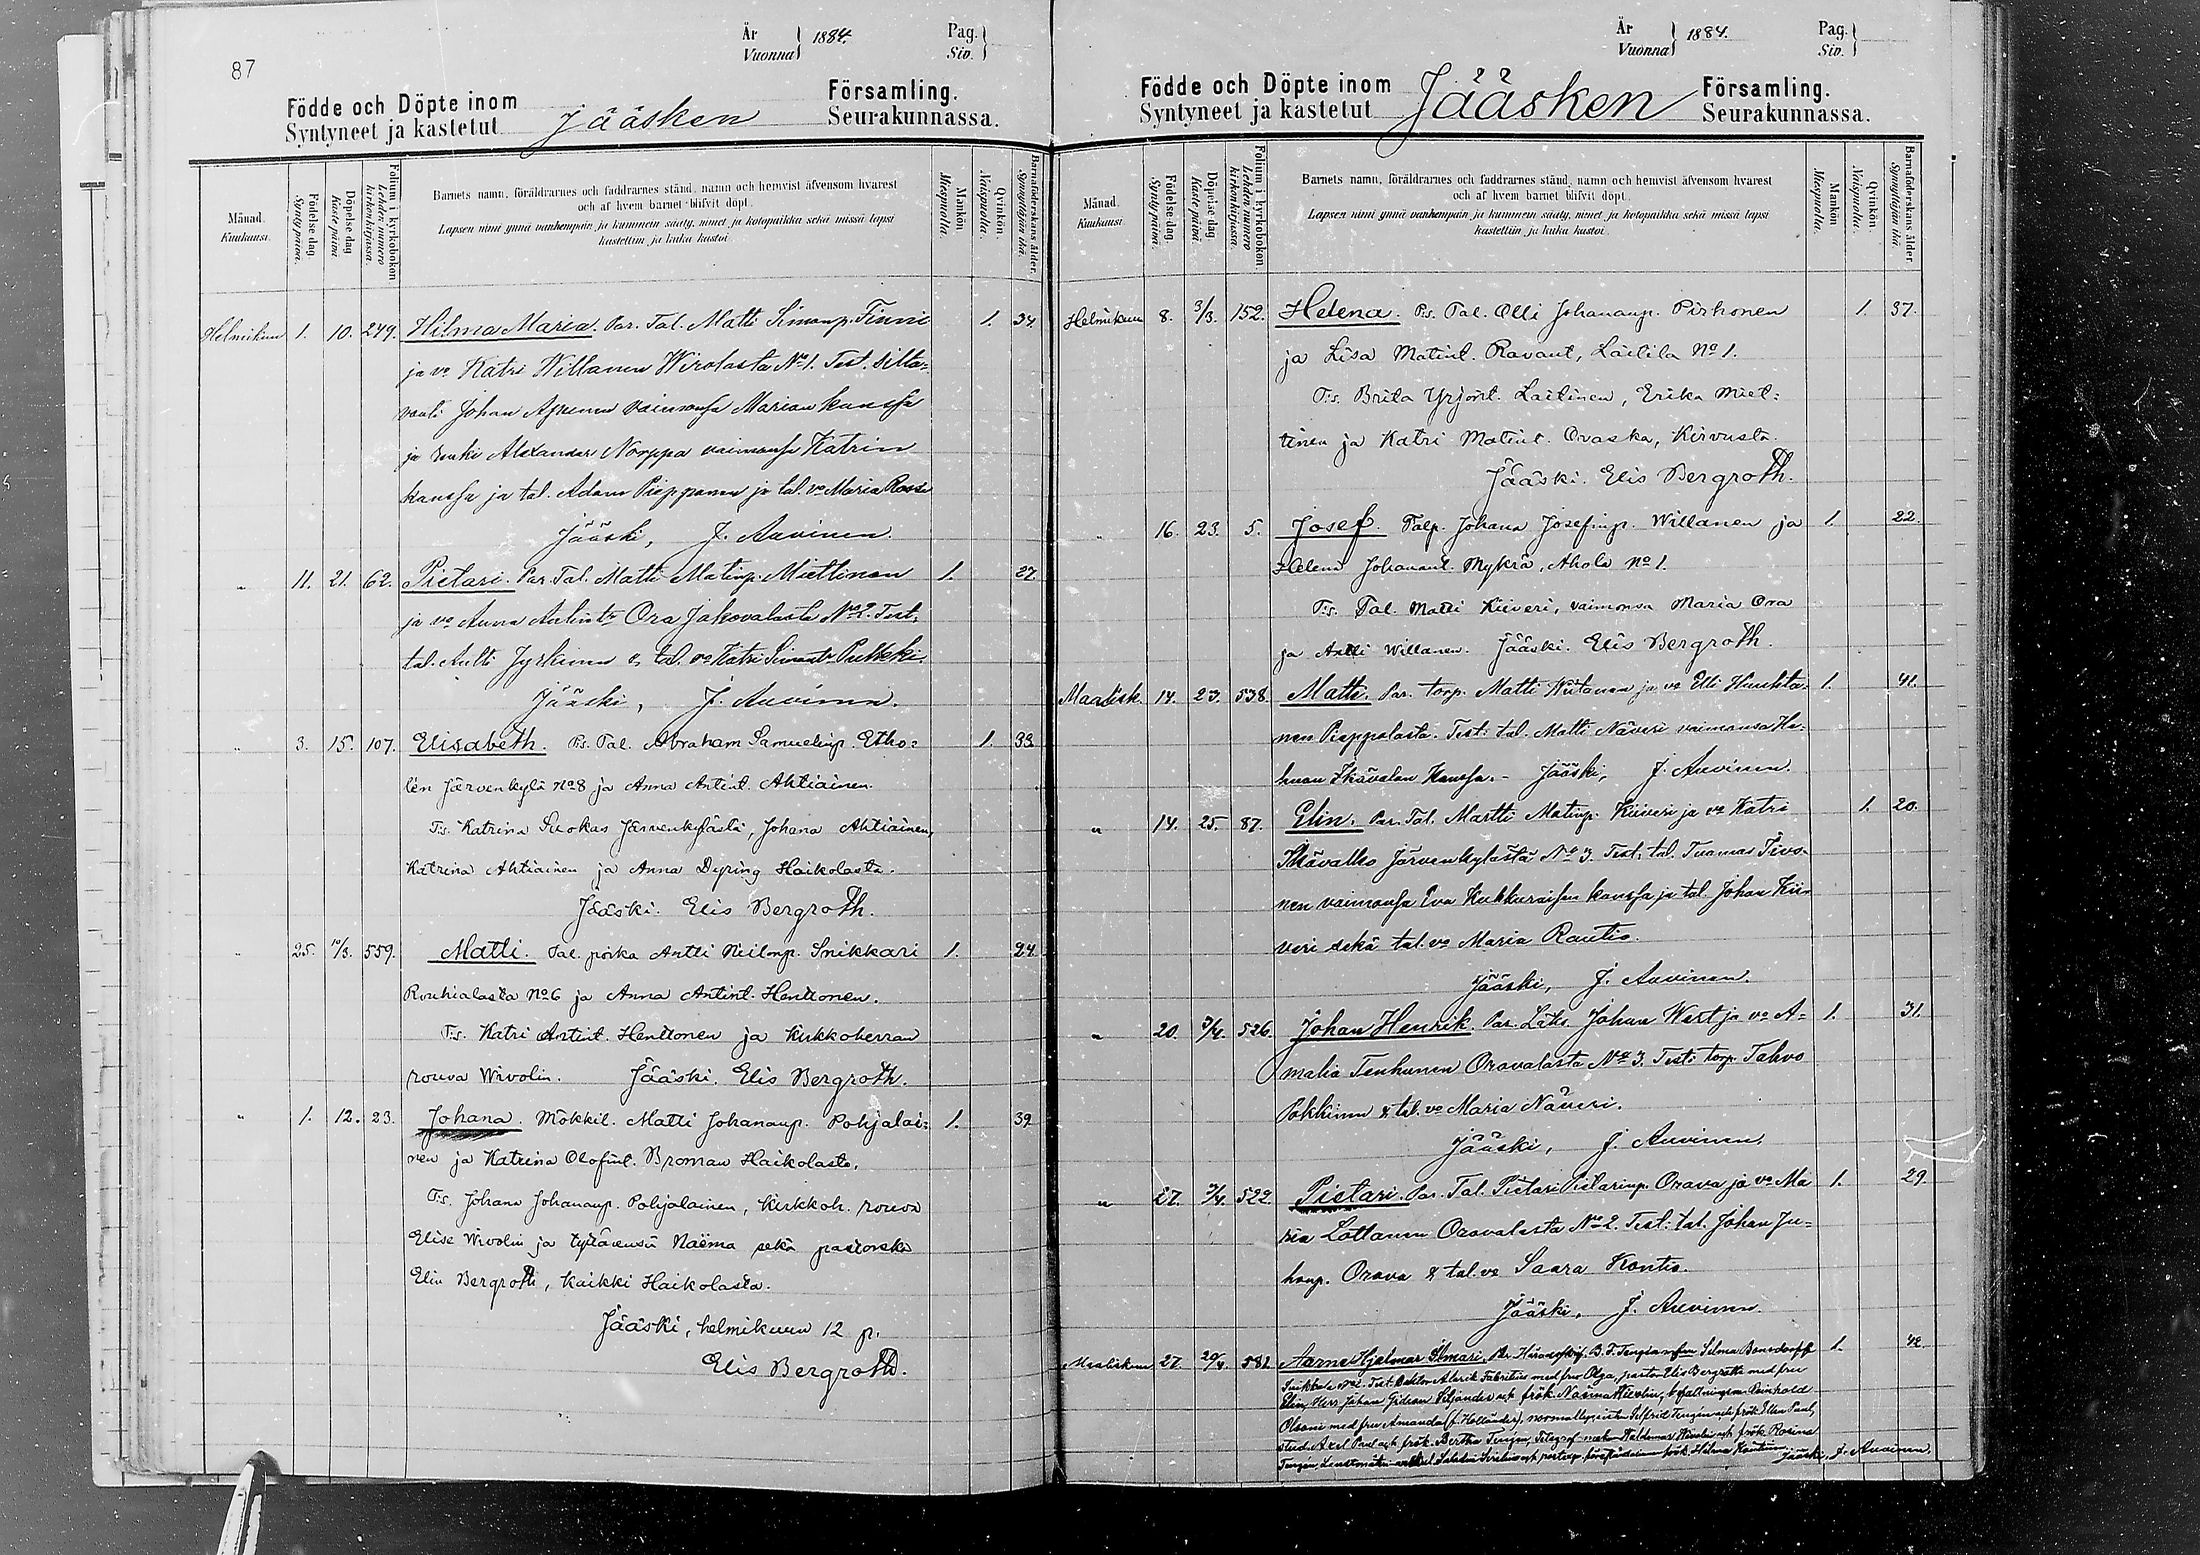 87
År
Vuonna
1884.
Pag.
Siv.
Födde och Döpte inom
Syntyneet ja kastetut
Jääsken
Församling.
Seurakunnassa.
Månad.
Kuukausi.
Födelse dag.
Synty päivä.
Döpelse dag
Kaste päivä
Folium i kyrkoboken
Lehden numero kirkonkirjassa.
Barnets namn, föräldrarnes och faddrarnes stånd, namn och hemvist äfvensom hvarest
och af hvem barnet blifvit döpt.
Lapsen nimi ynnä vanhempain ja kummein sääty, nimet ja kotopaikka sekä missä lapsi
kastettiin ja kuka kastoi.
Mankön
Miespuolia.
Qvinkön.
Naispuolia.
Barnaföderskans ålder.
Synnyttäjän ikä.
Helmikuu 1. 10. 249. Hilma Maria. Par. Tal. Matti Simonp. Finni 1. 34
ja vo Katri Willanen Wirolasta No 1. Test. Silta-
vouti Johan vaimonsa Marian kanssa
ja renki Alexander Norppa vaimonsa Katrin
kanssa ja tal. Adam Pieppanen ja tal. vo Maria
Jääski, J. Auvinen
" 11. 21. 62. Pietari. Par. Tal. Matti Matinp. Miettinen 1. 27
ja vo Anna Antintr Ora Jakovalasta No 2. Test.
tal. Antti Jyrkinen & tal. vo Katri Simontr Pukki
Jääski, J. Auvinen.
" 3. 15. 107. Elisabeth. Vs. Tal. Abraham Samuelinp. Etho- 1. 33
lén Järvenkylä No 8 ja Anna Antint. Ahtiainen.
T:s. Katrina Suokas Järvenkylästä, Johana Ahtiainen,
Katrina Ahtiainen ja Anna Dyring Haikolasta.
Jääski. Elis Bergroth.
" 25. 10/3. 559. Matti. Tal. poika Antti Neilonp. Snikkari 1. 24
Rouhialasta No 6 ja Anna Antint. Henttonen.
T:s. Katri Antint. Henttonen ja Kirkkoherran
rouva Wivolin. Jääski. Elis Bergroth.
" 1. 12. 23. Johana. Mökkil. Matti Johananp. Pohjalai- 1. 39
nen ja Katrina Olofint. Broman Haikolasta.
T:s. Johana Johananp. Pohjalainen, Kirkkoh. rouva
Elise Wivolin ja tyttärensä Naëma sekä pastorska
Elin Bergroth, kaikki Haikolasta.
Jääski, helmikuun 12 p.
Elis Bergroth.
År
Vuonna
1884.
Pag.
Siv.
Födde och Döpte inom
Syntyneet ja kastetut
Jääsken
Församling.
Seurakunnassa.
Månad.
Kuukausi.
Födelse dag.
Synty päivä.
Döpelse dag.
Kaste päivä
Folium i kyrkoboken.
Lehden numero kirkonkirjassa.
Barnets namn, föräldrarnes och faddrarnes stånd, namn och hemvist äfvensom hvarest
och af hvem barnet blifvit döpt.
Lapsen nimi ynnä vanhempain ja kummein sääty, nimet ja kotopaikka sekä missä lapsi
kastettiin ja kuka kastoi.
Mankön
Miespuolia.
Qvinkön.
Naispuolia.
Barnaföderskans ålder.
Synnyttäjän ikä.
Helmikuu 8. 3/3. 152. Helena. Vs. Tal. Olli Johananp. Pirhonen 1. 37.
ja Liisa Matint. Ravant, Laitila No 1.
T:s. Brita Yrjönt. Laitinen, Erika Miet-
tinen ja Katri Matint. Ovaska, Kirvusta.
Jääski. Elis Bergroth.
" 16. 23. 5. Josef. Talp. Johana Josefinp. Willanen ja 1. 22
Helena Johanant. Mykrä, Ahola No 1.
T:s. Tal. Matti Kiiveri, vaimonsa Maria Ora
ja Antti Willanen. Jääski. Elis Bergroth.
Maalisk. 14. 23. 538 Matti. Par. torp. Matti Wiitanen ja vo Elli Huuhta- 1. 41.
nen Pieppolasta. Test: tal. Matti Näveri vaimonsa He-
lenan Ikävalon kanssa. - Jääski, J. Auvinen.
" 14. 25. 87. Elin. Par. Tal. Martti Matinp. Kiiveri ja vo Katri 1. 20.
Ikävalko Järvenkylästä No 3. Test: tal. Tuomas Tivo-
nen vaimonsa Eva Kukkuraisen kanssa ja tal. Johan Kii-
veri sekä tal. vo Maria Rautio.
Jääski, J. Auvinen.
" 20. 7/4. 526. Johan Henrik. Par. Läks. Johan West ja vo A- 1. 31.
malia Tenhunen Oravalasta No 3. Test: torp. Tahvo
Pokkinen & tal. vo Maria Näveri.
Jääski, J. Auvinen.
" 27. 7/4. 522. Pietari. Par. Tal. Pietari Pietarinp. Orava ja vo Ma 1. 29
ria Lottanen Oravalasta No 2. Test: tal. Johan Ju-
hanp. Orava & tal. vo Saara Kontio.
Jääski, J. Auvinen
Maaliskuu 27. 20/4. 581. Aarne Hjalmar Ilmari. B. T. Tengén Selma Bonsdorff 1. 42.
No 2. Test. Doktor Alarik Fabritius med fru Olga, pastor Elis Bergroth med fru
Elin, Herr Johan Gideon Siljander och frök. Naëma Wivolin, befallningsm. Reinhold
Olsoni med fru Amanda (f. Holländer), Tengén och frök. Ellen Paul,
stud. Axel Paul och frök. Bertha Tengén, Waldemar och frök. Rosina
Tengén, och frök. Hilma Jääski, J. Auvinen.